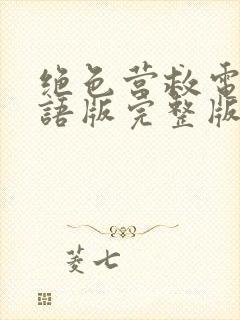 绝色营救電
語版完整版
菱七